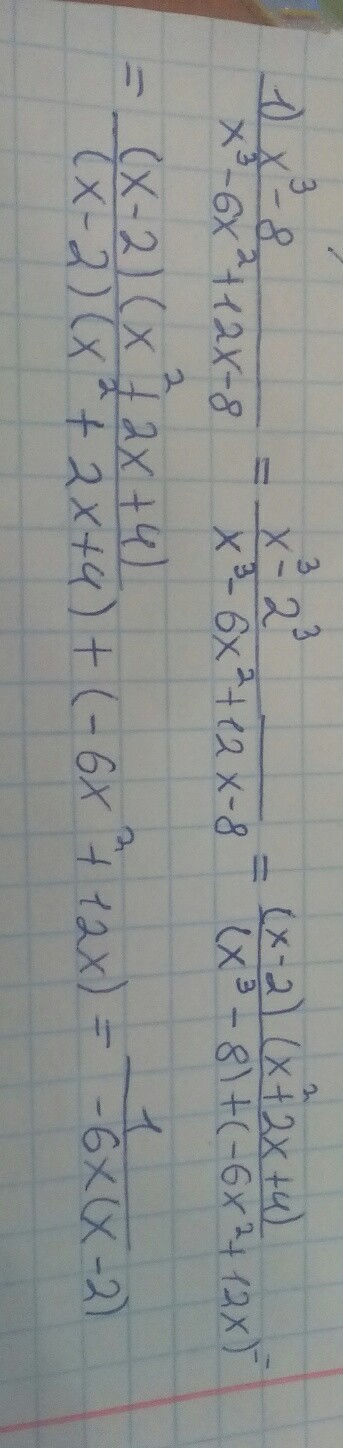 1) x³-8 / x³-6x²+12x-8 = x³-2³ / x³-6x²+12x-8 = (x-2)(x²+2x+4) / (x³-8)+(-6x²+12x) =
= (x-2)(x²+2x+4) / (x-2)(x²+2x+4)+(-6x²+12x) = 1 / -6x(x-2)